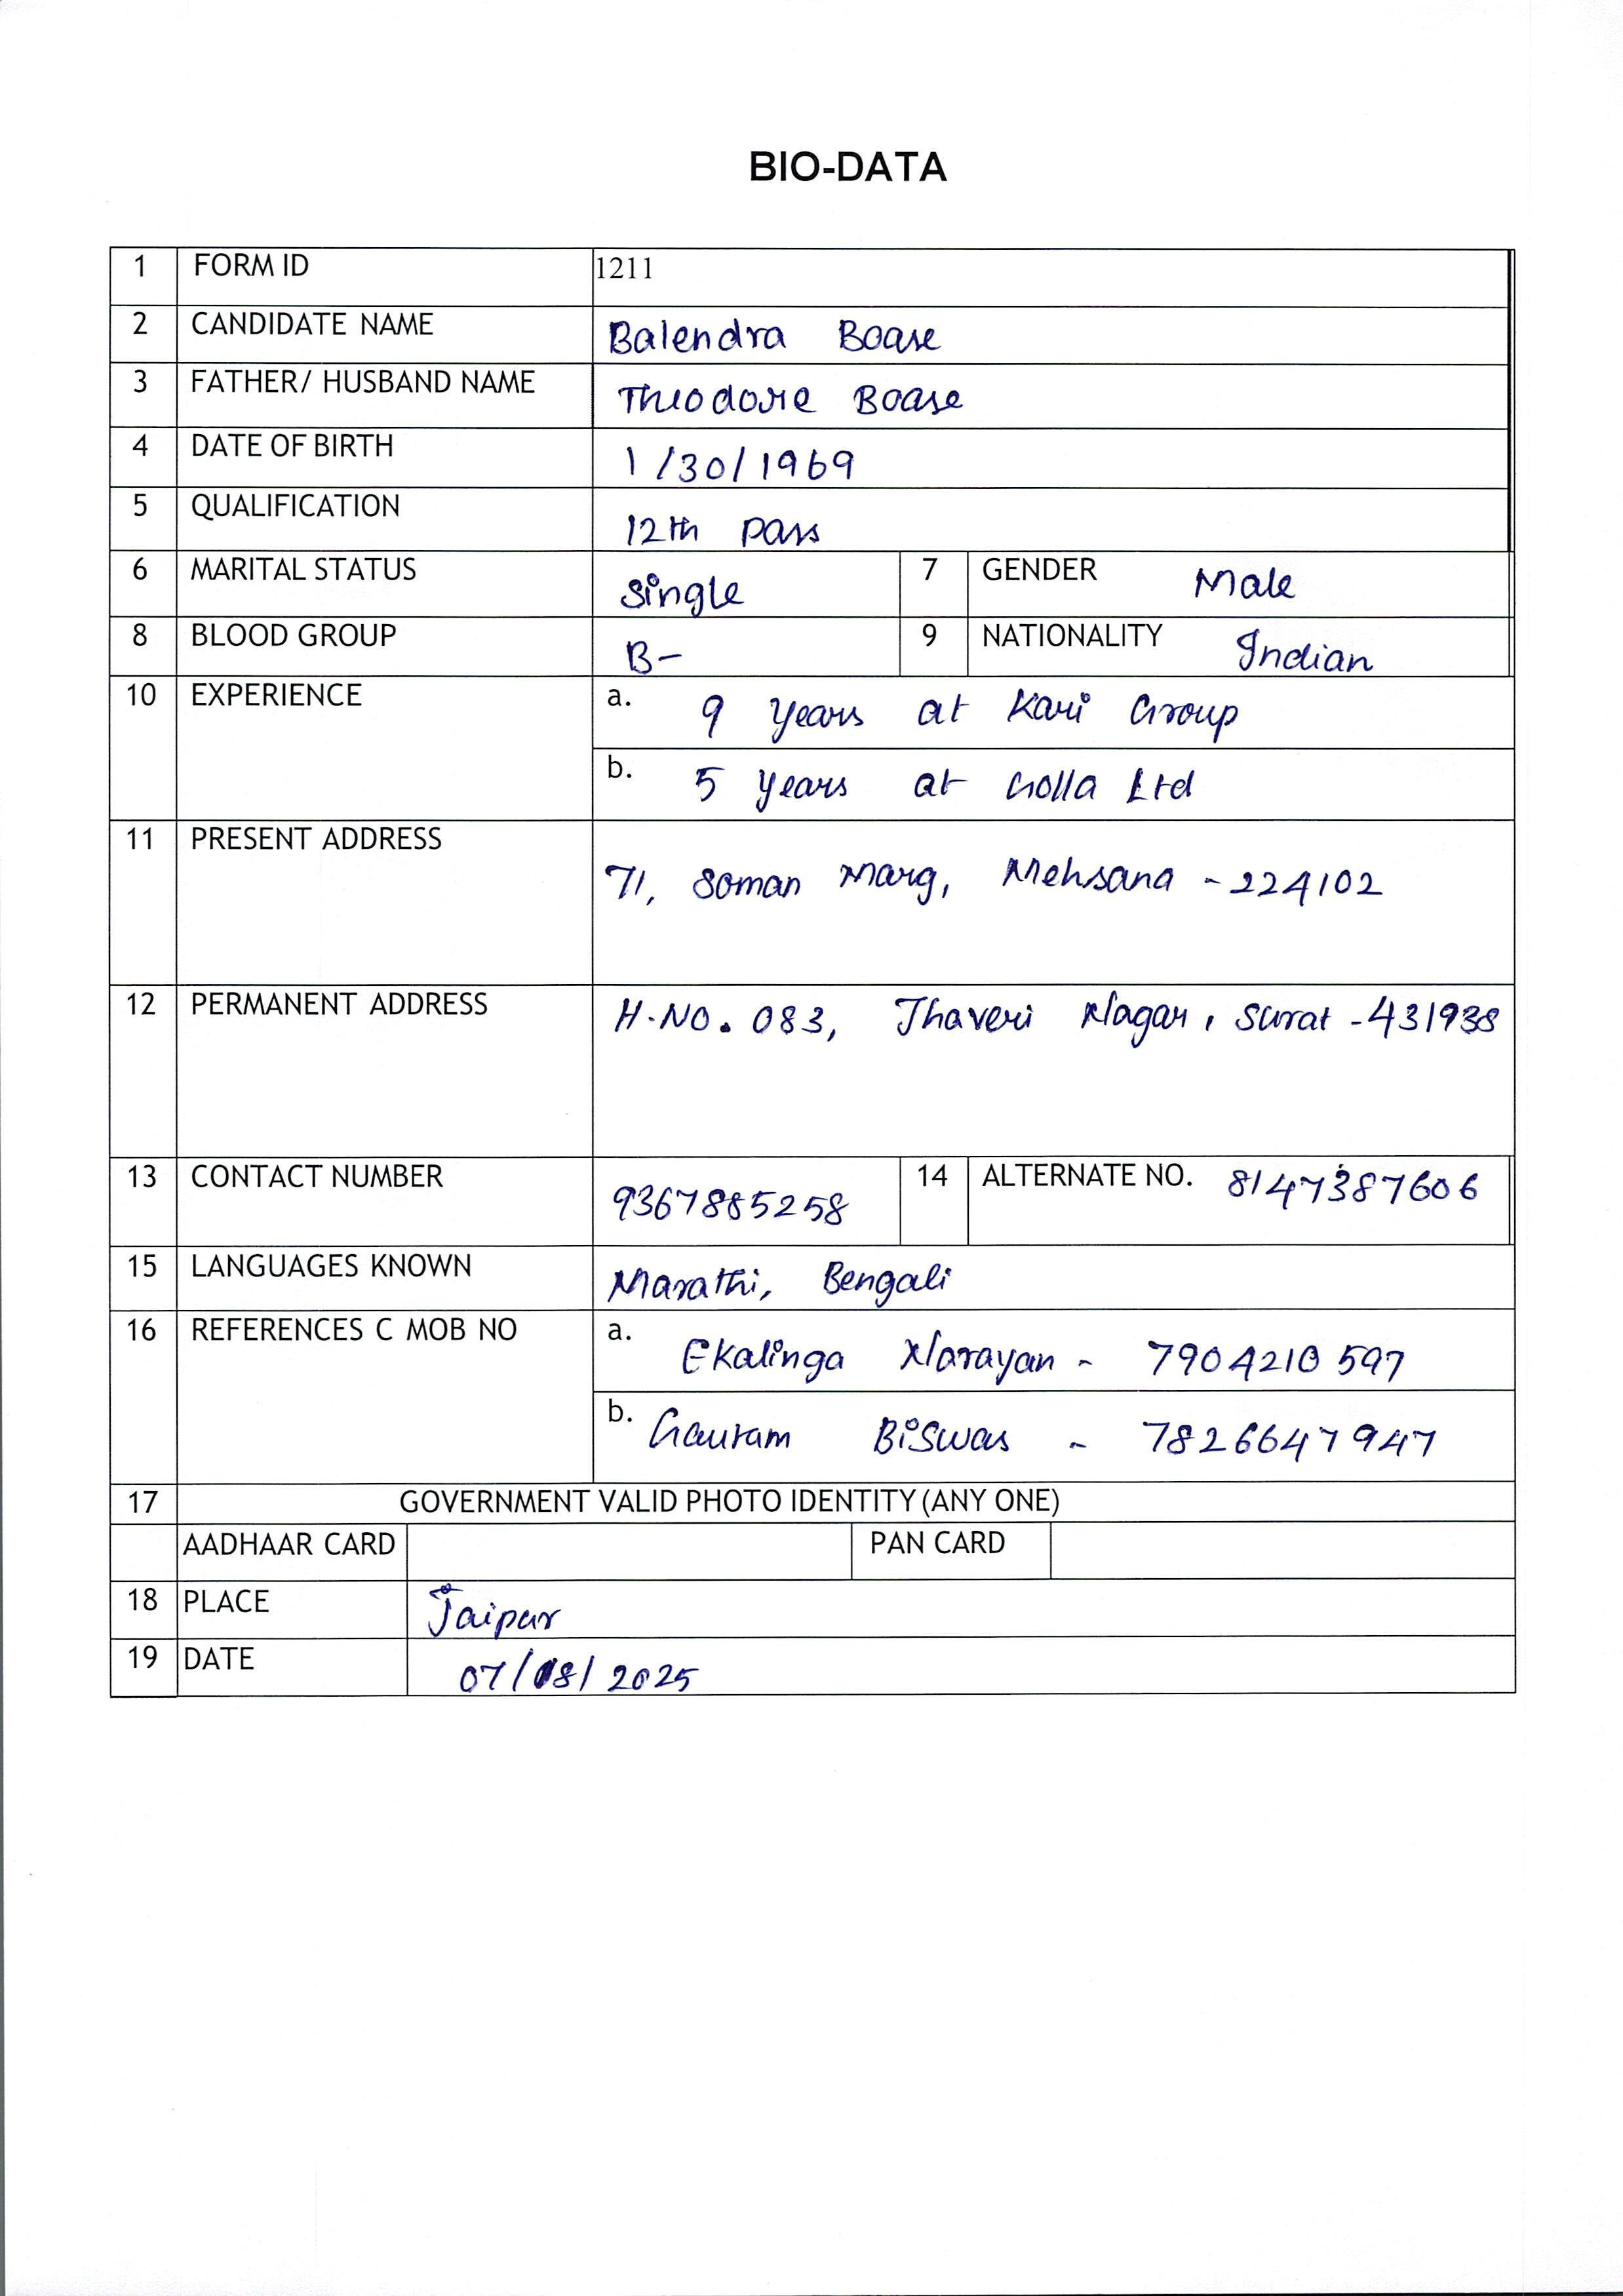 BIO-DATA
1 FORM ID 1211
2 CANDIDATE NAME Balendra Boase
3 FATHER/ HUSBAND NAME Theodore Boase
4 DATE OF BIRTH 1/30/1969
5 QUALIFICATION 12th pass
6 MARITAL STATUS Single 7 GENDER Male
8 BLOOD GROUP B- 9 NATIONALITY Indian
10 EXPERIENCE a. 9 years at Kari Group
b. 5 years at Golla Ltd
11 PRESENT ADDRESS
71, Soman Marg, Mehsana - 224102
12 PERMANENT ADDRESS H.NO. 083, Jhaveri Nagar, Surat - 431938
13 CONTACT NUMBER 9367885258 14 ALTERNATE NO. 8147387606
15 LANGUAGES KNOWN Marathi, Bengali
16 REFERENCES C MOB NO a. Ekalinga Narayan - 7904210597
b. Gautam Biswas - 7826647947
17 GOVERNMENT VALID PHOTO IDENTITY (ANY ONE)
AADHAAR CARD PAN CARD
18 PLACE Jaipur
19 DATE 07/08/2025